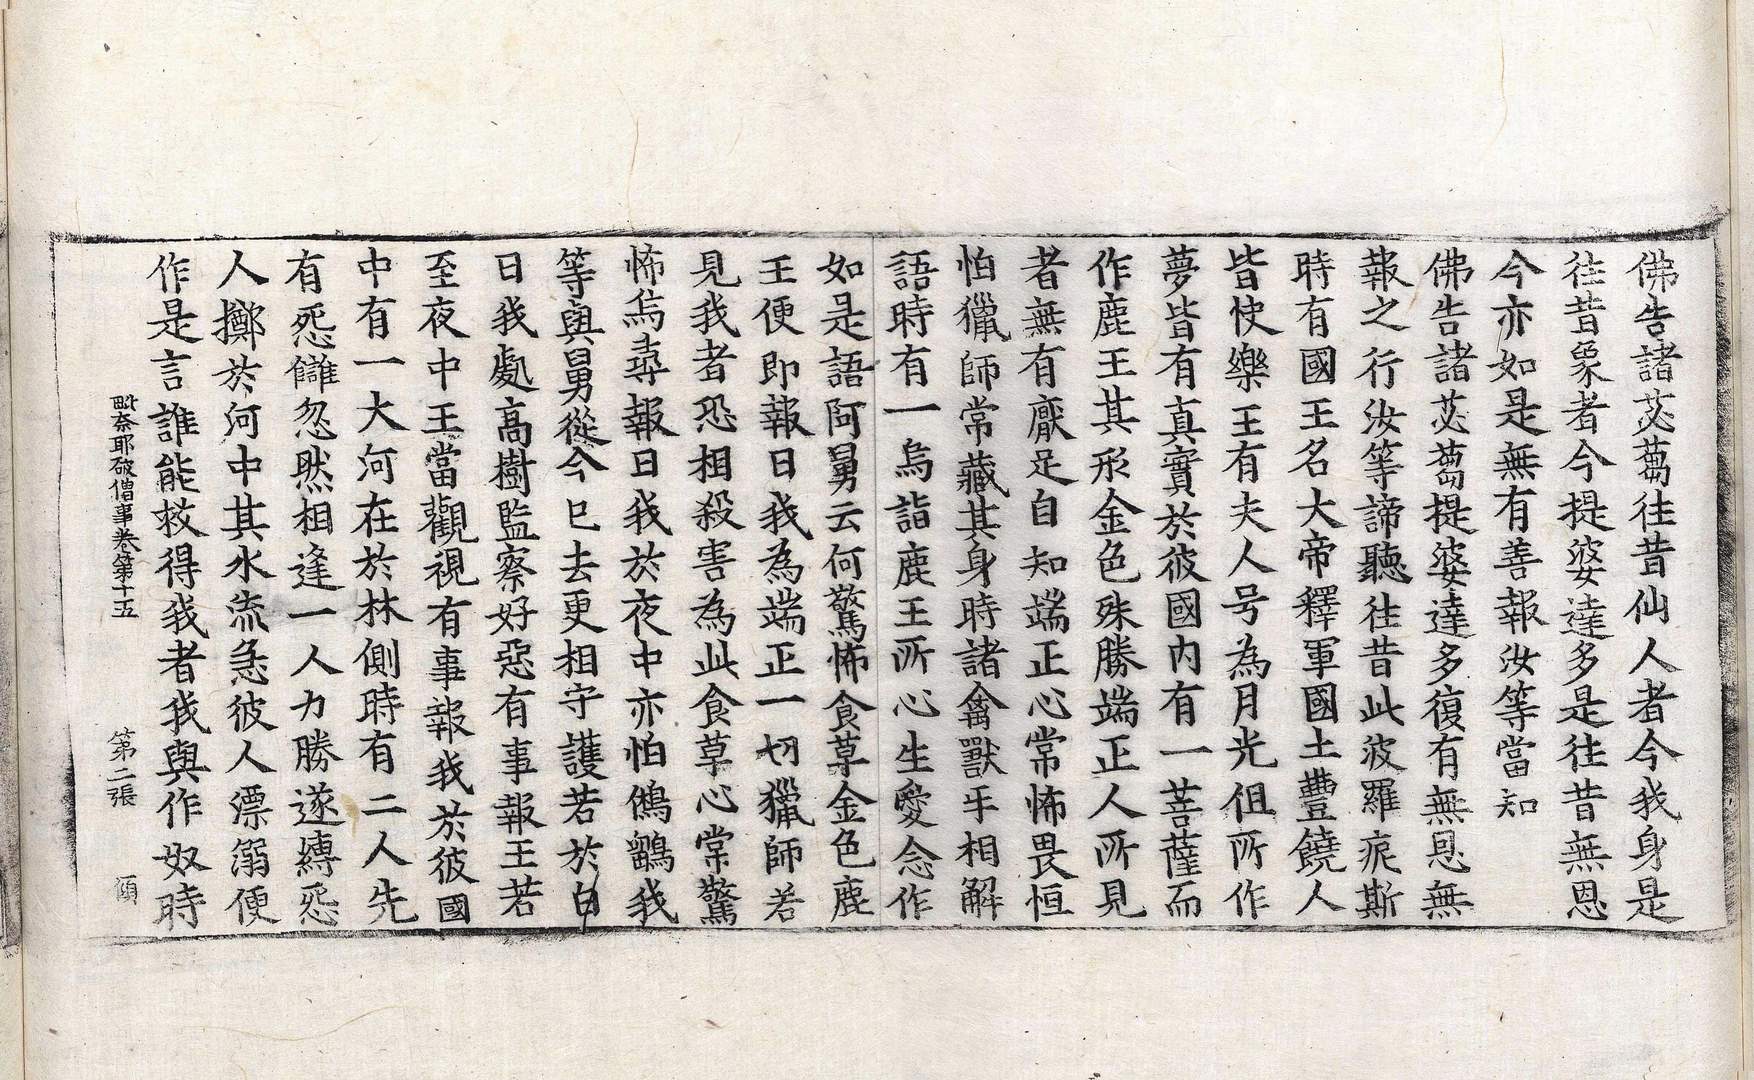 佛告諸苾蒭往昔仙人者今我身是
往昔象者今提婆達多是往昔無恩
今亦如是無有善報汝等當知
佛告諸苾蒭提婆達多復有無恩無
報之行汝等諦聽往昔此波羅痆斯
時有國王名大帝釋軍國土豐饒人
皆快樂王有夫人号為月光但所作
夢皆有真實於彼國內有一菩薩而
作鹿王其形金色殊勝端正人所見
者無有厭足自知端正心常怖畏恒
怕獵師常藏其身時諸禽獸手相解
語時有一烏詣鹿王所心生愛念作
如是語阿舅云何驚怖食草金色鹿
王便即報曰我為端正一切獵師若
見我者恐相殺害為此食草心常驚
怖烏尋報曰我於夜中亦怕鵂鶹我
等與舅從今已去更相守護若於白
日我處高樹監察好惡有事報王若
至夜中王當觀視有事報我於彼國
中有一大河在於林側時有二人先
有惌讎忽然相逢一人力勝遂縛惌
人擲於河中其水流急彼人漂溺便
作是言誰能救得我者我與作奴時
毗奈耶破僧事卷第十五　第二張　傾